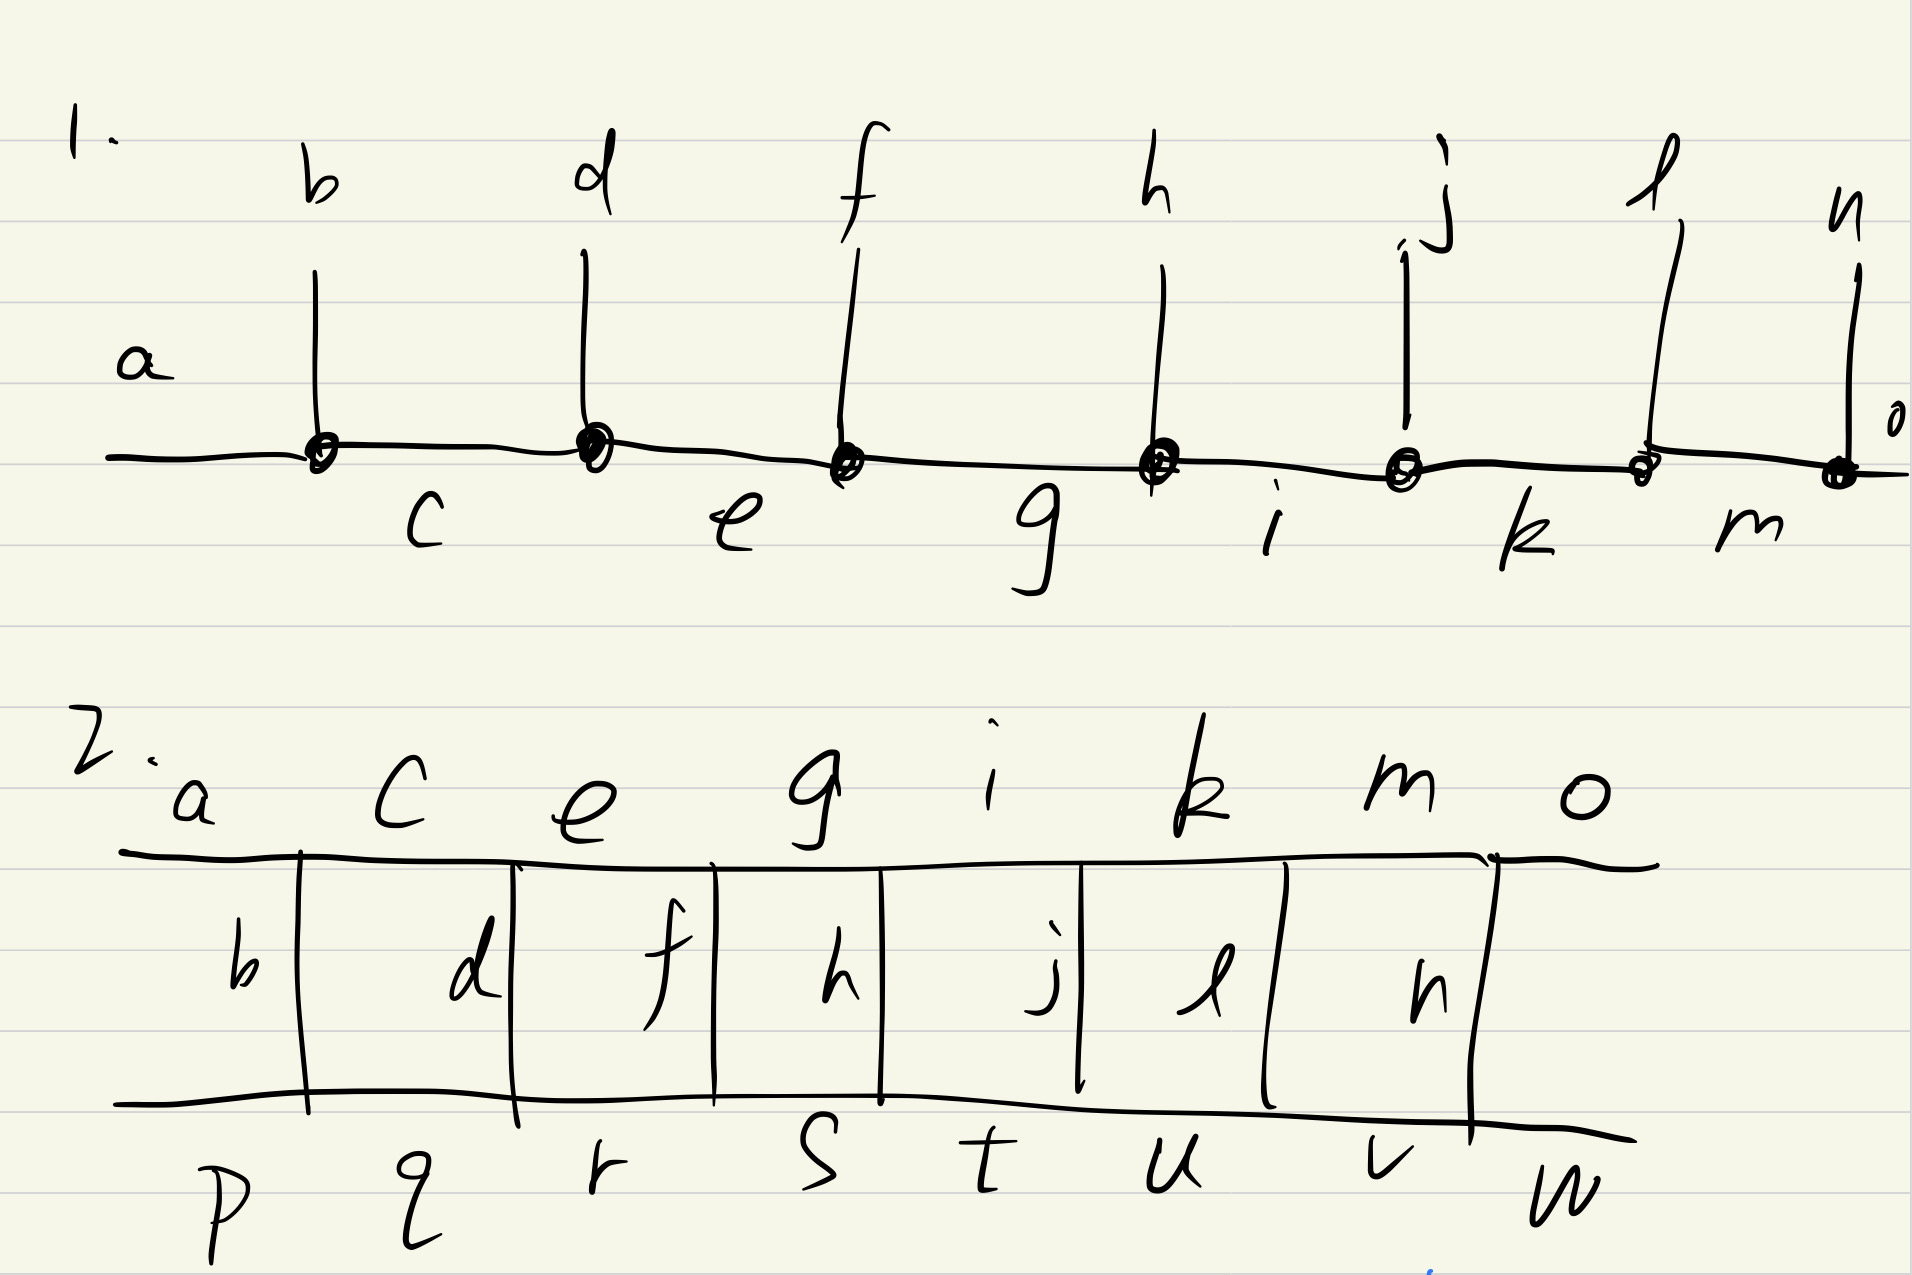 1.
b d f h j l n
a o
c e g i k m
2.
a c e g i k m o
b d f h j l n
p q r s t u v w